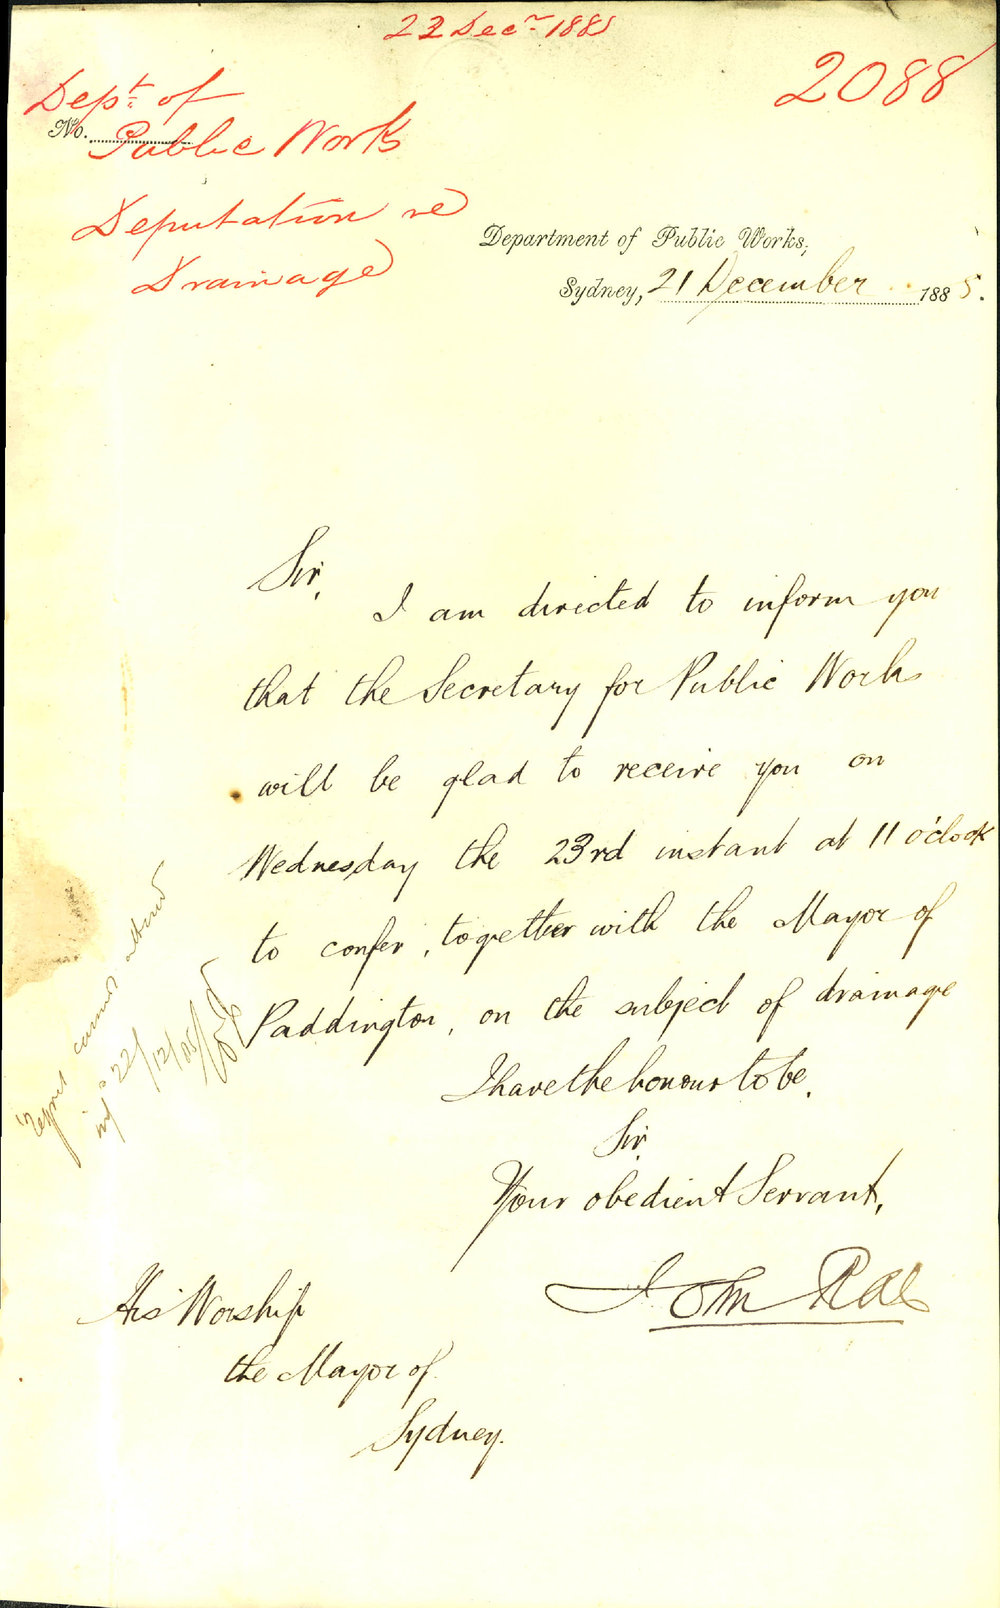 22 Decr 1885
2088
Dept. of
No.
Public Works
Deputation re
Drainage
Department of Public Works,
Sydney, 21 December 1885.
Sir,
I am directed to inform you
that the Secretary for Public Works
will be glad to receive you on
Wednesday the 23rd instant at 11 o'clock
to confer, together with the Mayor of
Paddington, on the subject of drainage
I have the honour to be,
Sir
Your obedient Servant,
John Rae
His Worship
the Mayor of
Sydney.
regret cannot attend
22/12/85